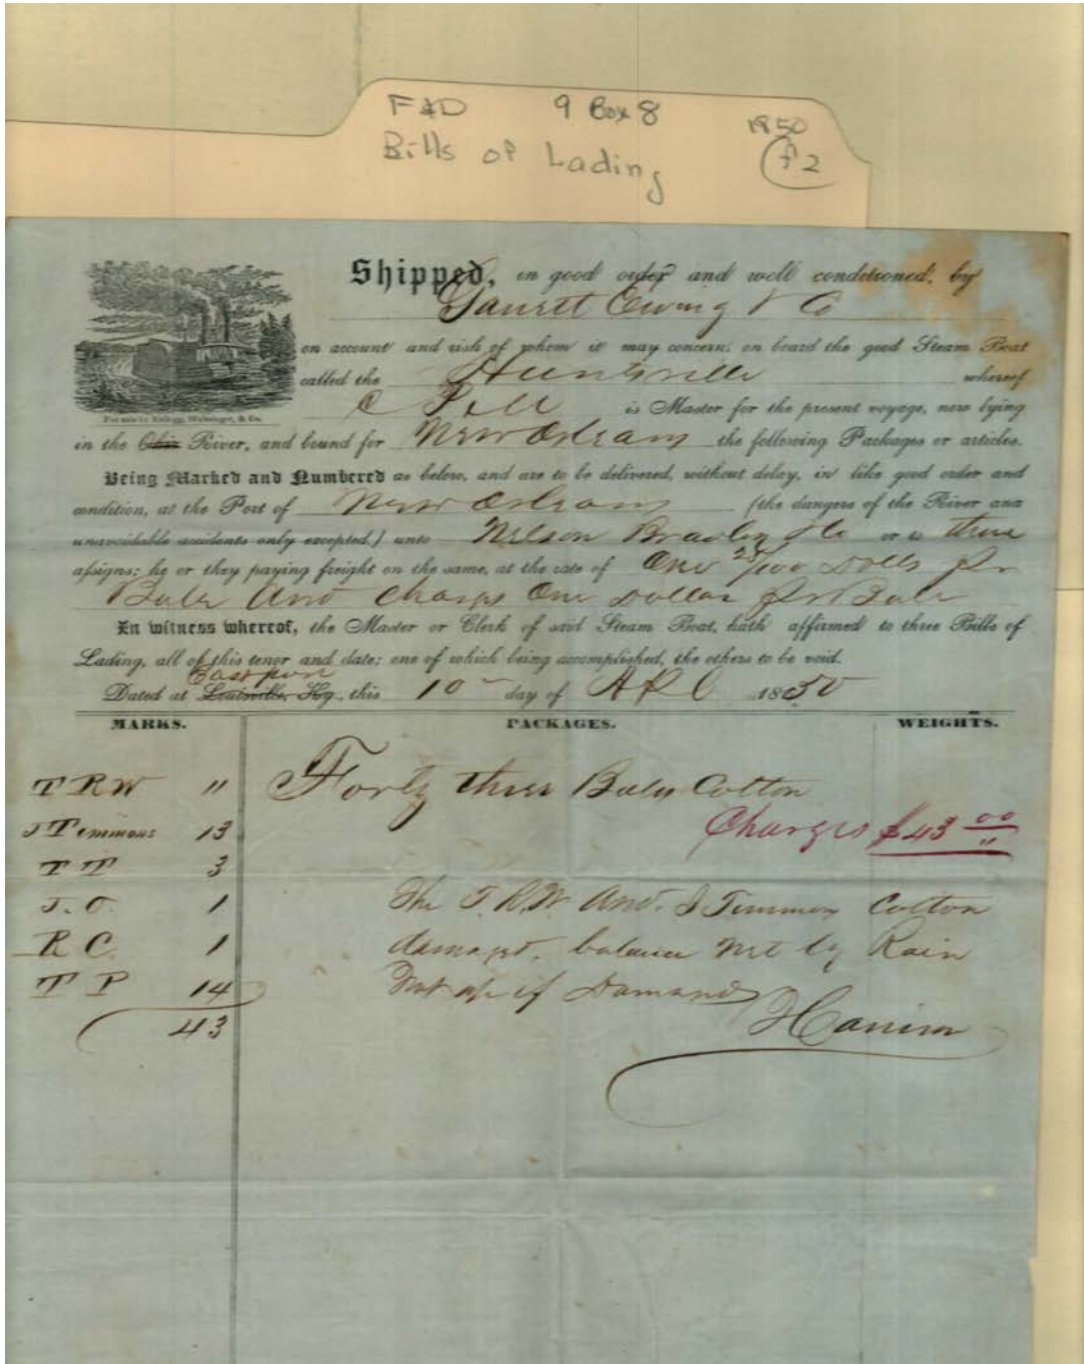 F&D 9 Box 8 1850
Bills of Lading f2
Shipped, in good order and well conditioned, by
Ewing & Co
on account and risk of whom it may concern, on board the good Steam Boat
called the Huntsville whereof
C Pell is Master for the present voyage, now lying
in the Ohio River, and bound for New Orleans the following Packages or articles.
Being Marked and Numbered as below, and are to be delivered, without delay, in like good order and
condition, at the Port of New Orleans (the dangers of the River and
unavoidable accidents only excepted,) unto Nelson Co or to there
assigns; he or they paying freight on the same, at the rate of One 25/100 Dolls Pr
Bale And Charges One Dollar Pr Bale
In witness whereof, the Master or Clerk of said Steam Boat, hath affirmed to three Bills of
Lading, all of this tenor and date; one of which being accomplished, the others to be void.
Eastport
Dated at Louisville, Ky., this 10 day of APL 1850
MARKS. PACKAGES. WEIGHTS.
T R W " Forty three Bales Cotton
J Temmons 13 Charges $43 00
T T 3
J. O. 1 The T.R.W. And. J Timmons Cotton
R C. 1 damagd, balance wet by Rain
T P 14
43 Harrison